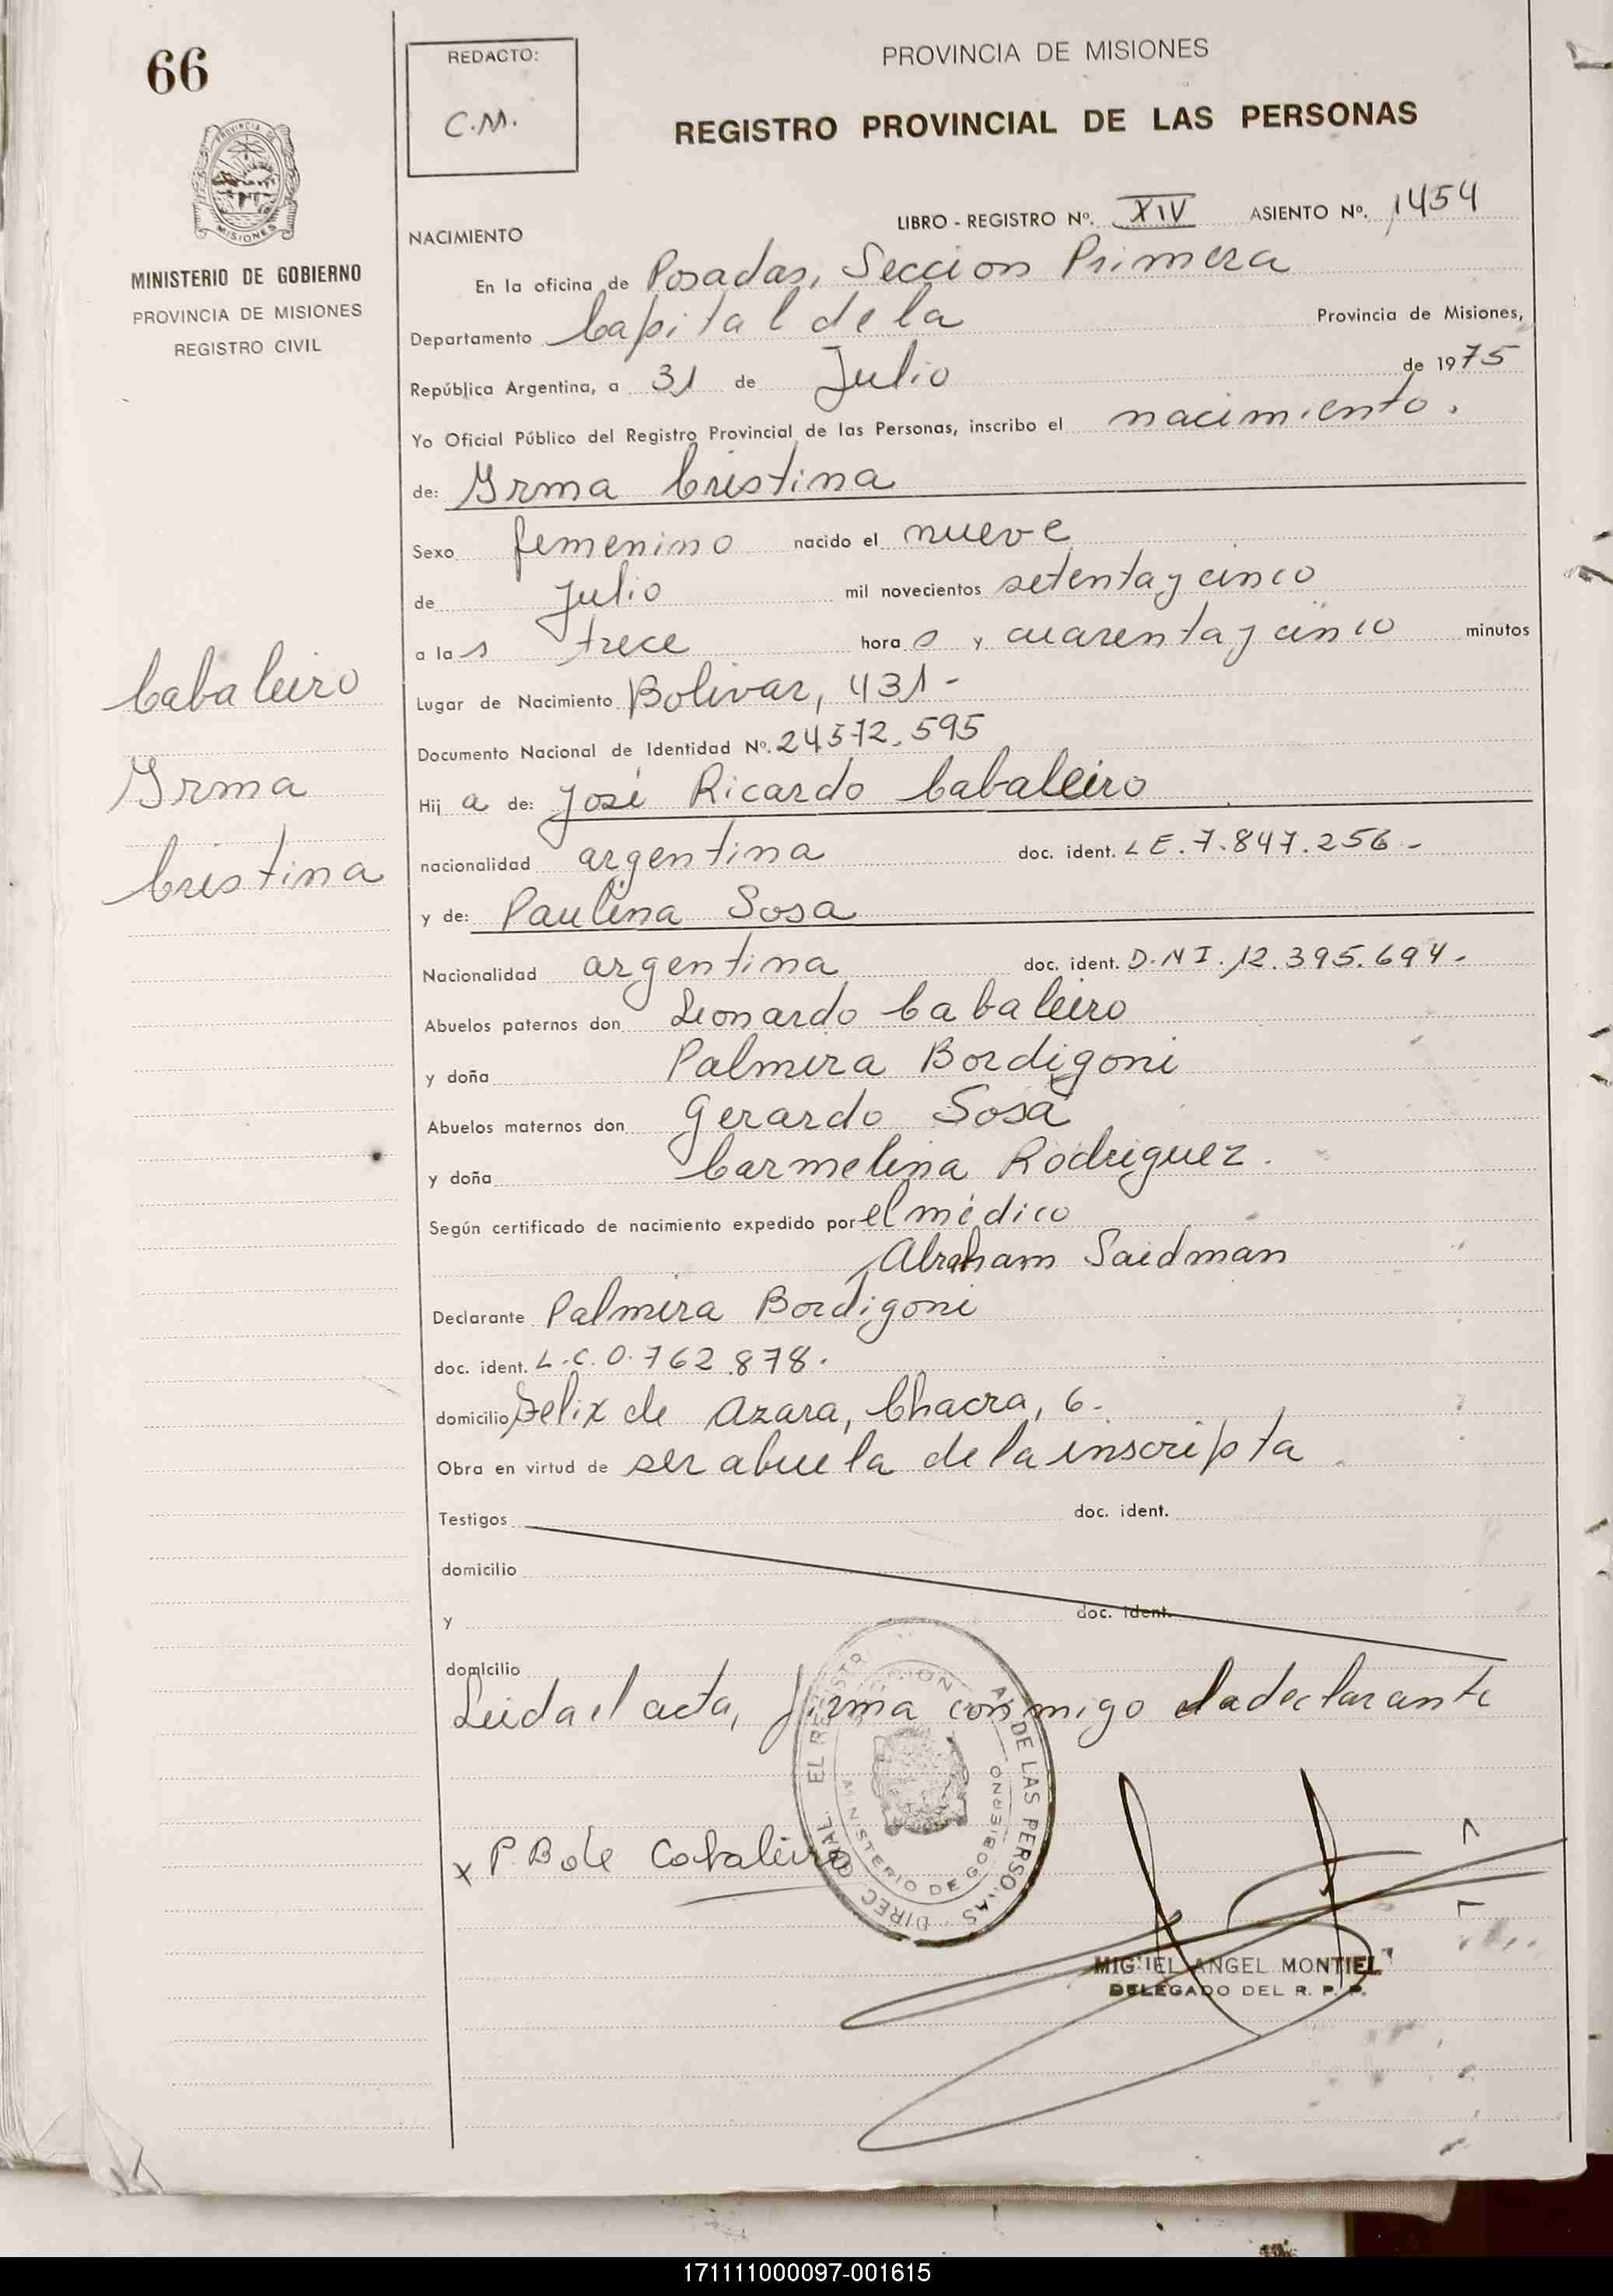 66
REDACTO:
C.M.
PROVINCIA DE MISIONES
REGISTRO PROVINCIAL DE LAS PERSONAS
PROVINCIA DE
MISIONES
MINISTERIO DE GOBIERNO
PROVINCIA DE MISIONES
REGISTRO CIVIL
LIBRO - REGISTRO Nº. XIV ASIENTO Nº. 1454
NACIMIENTO
En la oficina de Posadas, Seccion Primera
Departamento Capital de la Provincia de Misiones,
República Argentina, a 31 de Julio de 1975
Yo Oficial Público del Registro Provincial de las Personas, inscribo el nacimiento.
de: Yrma Cristina
Sexo femenino nacido el nueve
de Julio mil novecientos setenta y cinco
a las trece horas y cuarenta y cinco minutos
Lugar de Nacimiento Bolivar, 431 -
Documento Nacional de Identidad Nº. 24572.595
Hij a de: José Ricardo Cabaleiro
nacionalidad argentina doc. ident. L E. 7.847.256 -
y de: Paulina Sosa
Nacionalidad argentina doc. ident. D.N I. 12.395.694 -
Abuelos paternos don Leonardo Cabaleiro
y doña Palmira Bordigoni
Abuelos maternos don Gerardo Sosa
y doña Carmelina Rodriguez.
Según certificado de nacimiento expedido por el médico
Abraham Saidman
Declarante Palmira Bordigoni
doc. ident. L.C. 0.762.878.
domicilio Felix de Azara, Chacra, 6.
Obra en virtud de ser abuela de la inscripta
Testigos doc. ident.
domicilio
y doc. ident.
domicilio
Leida el acta, firma conmigo la declarante
x P. B de Cabaleiro
MINISTERIO DE GOBIERNO
DE LAS PERSONAS
MIGUEL ANGEL MONTIEL
DELEGADO DEL R. P. P.
Cabaleiro
Yrma
Cristina
171111000097-001615